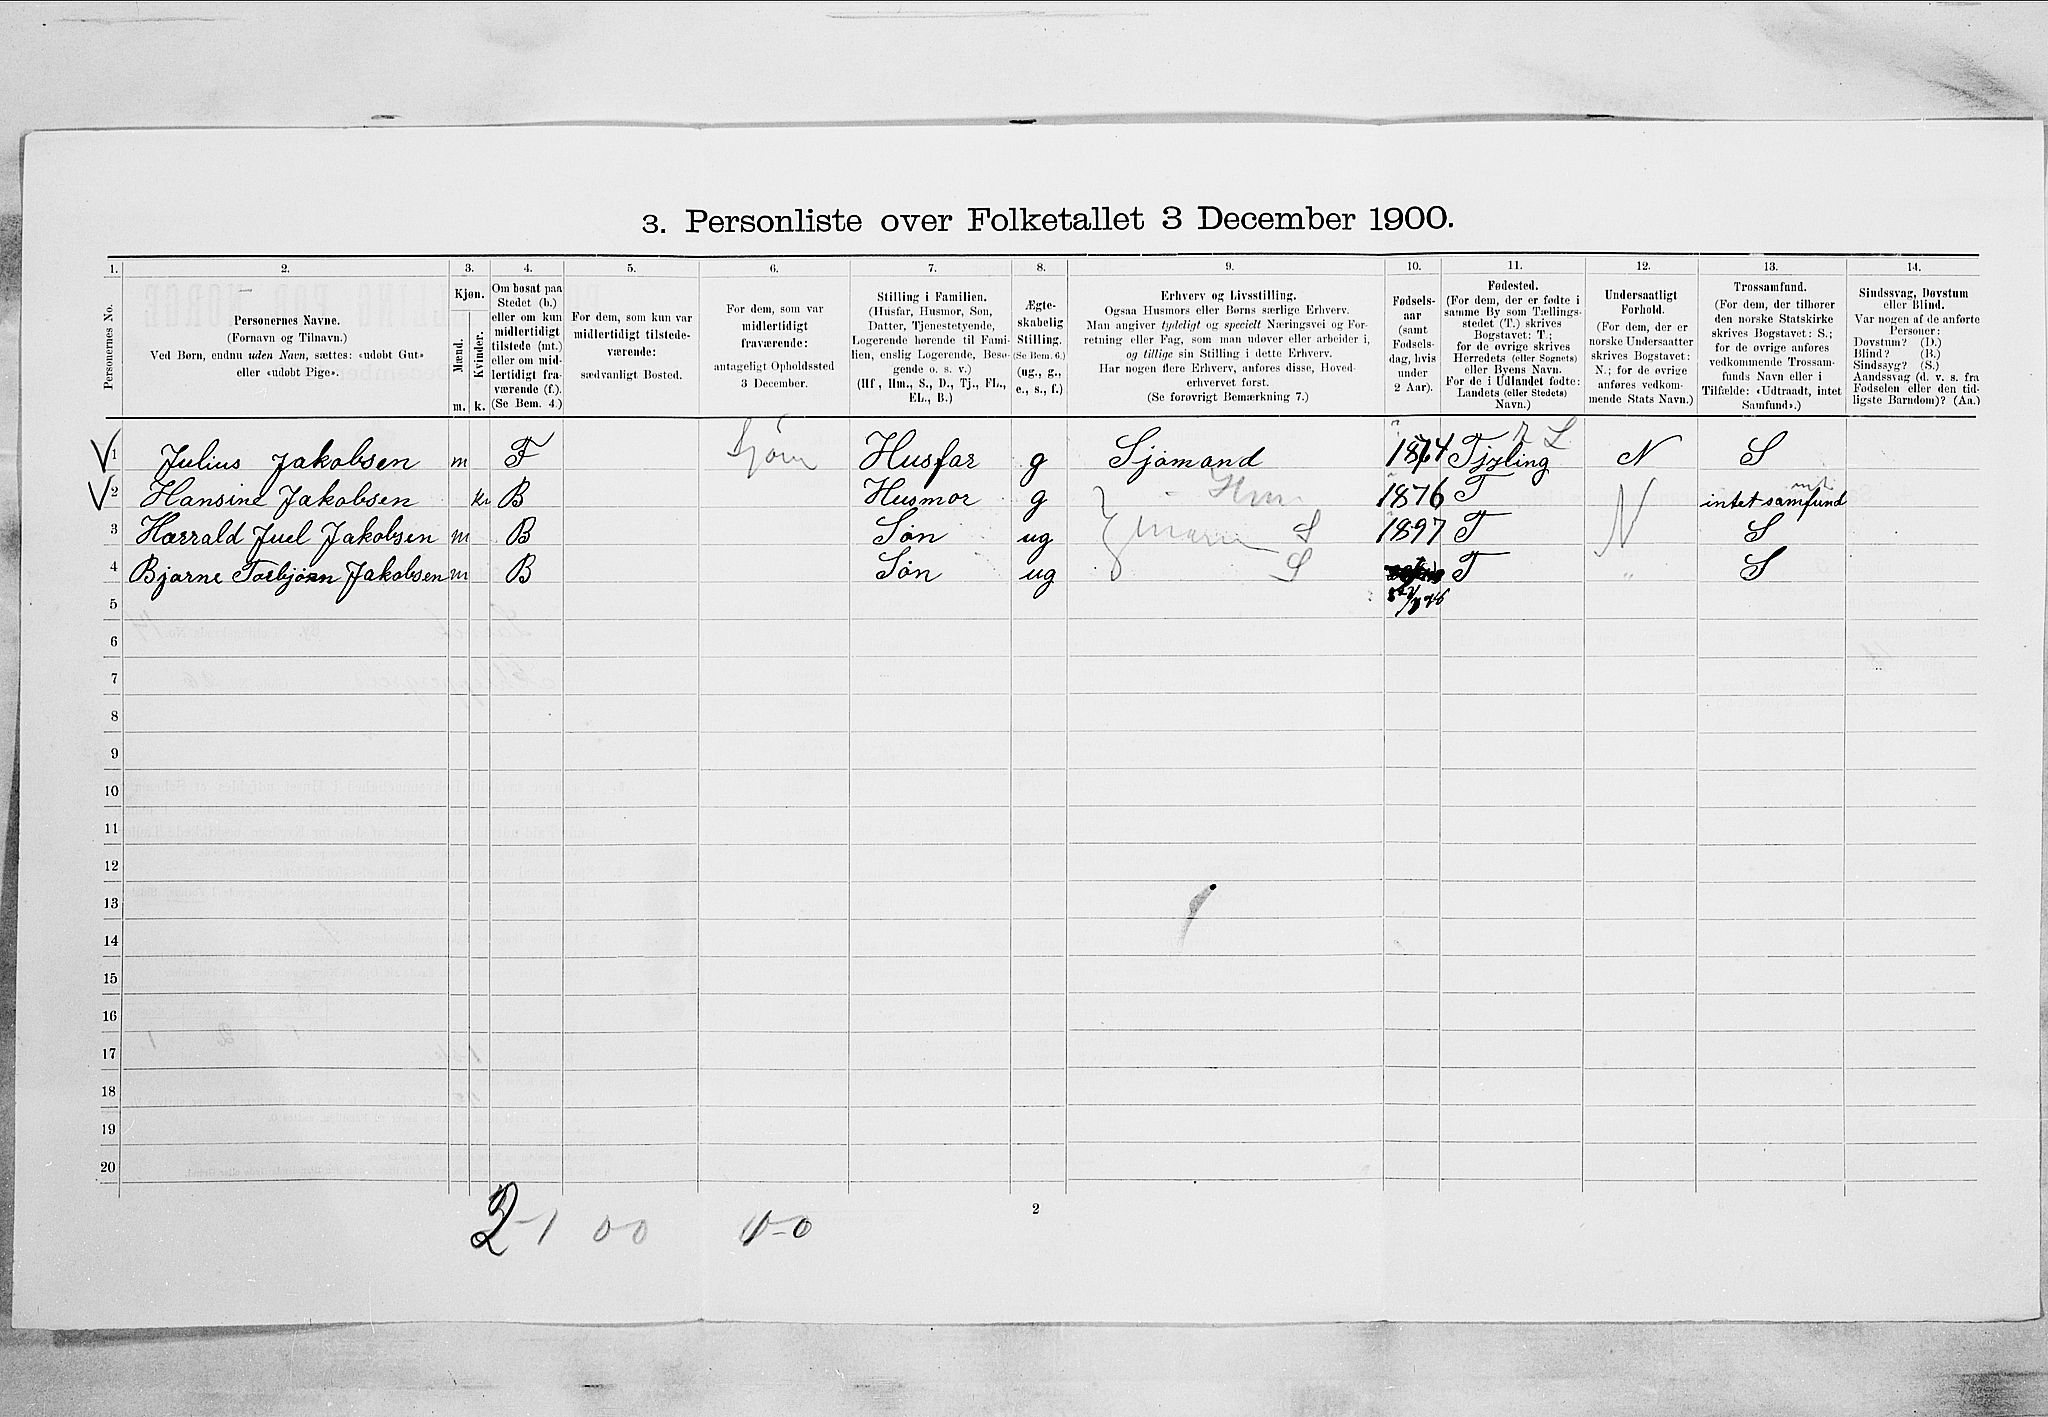 3. Personliste over Folketallet 3 December 1900.
1. 2. 3. 4. 5. 6. 7. 8. 9. 10. 11. 12. 13. 14.
Personernes No.
Personernes Navne.
(Fornavn og Tilnavn.)
Ved Børn, endnu uden Navn, sættes: «udøbt Gut»
eller «udøbt Pige».
Kjøn.
Mænd.
Kvinder.
m. k.
Om bosat paa
Stedet (b.)
eller om kun
midlertidigt
tilstede (mt.)
eller om mid-
lertidigt fra-
værende (f.).
(Se Bem. 4.)
For dem, som kun var
midlertidigt tilstede-
værende:
sædvanligt Bosted.
For dem, som var
midlertidigt
fraværende:
antageligt Opholdssted
3 December.
Stilling i Familien.
(Husfar, Husmor, Søn,
Datter, Tjenestetyende,
Logerende hørende til Fami-
lien, enslig Logerende, Besø-
gende o. s. v.)
(Hf., Hm., S., D., Tj., FL.,
EL., B.)
Ægte-
skabelig
Stilling.
(Se Bem. 6.)
(ug., g.,
e., s., f.)
Erhverv og Livsstilling.
Ogsaa Husmors eller Børns særlige Erhverv.
Man angiver tydeligt og specielt Næringsvei og For-
retning eller Fag, som man udøver eller arbeider i,
og tillige sin Stilling i dette Erhverv.
Har nogen flere Erhverv, anføres disse, Hoved-
erhvervet først.
(Se forøvrigt Bemærkning 7.)
Fødsels-
aar
(samt
Fødsels-
dag, hvis
under
2 Aar).
Fødested.
(For dem, der er fødte i
samme By som Tællings-
stedet (T.) skrives
Bogstavet: T.;
for de øvrige skrives
Herredets (eller Sognets)
eller Byens Navn.
For de i Udlandet fødte:
Landets (eller Stedets)
Navn.)
Undersaatligt
Forhold.
(For dem, der er
norske Undersaatter
skrives Bogstavet:
N.; for de øvrige
anføres vedkom-
mende Stats Navn.)
Trossamfund.
(For dem, der tilhører
den norske Statskirke
skrives Bogstavet: S.;
for de øvrige anføres
vedkommende Trossam-
funds Navn eller i
Tilfælde: «Udtraadt, intet
Samfund».)
Sindssvag, Døvstum
eller Blind.
Var nogen af de anførte
Personer:
Døvstum? (D.)
Blind? (B.)
Sindssyg? (S.)
Aandssvag (d. v. s. fra
Fødselen eller den tid-
ligste Barndom)? (Aa.)
1 Julius Jakobsen m F Husfar g Sjømand 1864 Tjøling N S
2 Hansine Jakobsen k B Husmor g Hm 1876 T intet samfund
3 Harrald Juel Jakobsen m B Søn ug S 1897 T N S
4 Bjarne Torbjørn Jakobsen m B Søn ug S T „ S
5
6
7
8
9
10
11
12
13
14
15
16
17
18
19
20
2-1 0-0 1-0
2